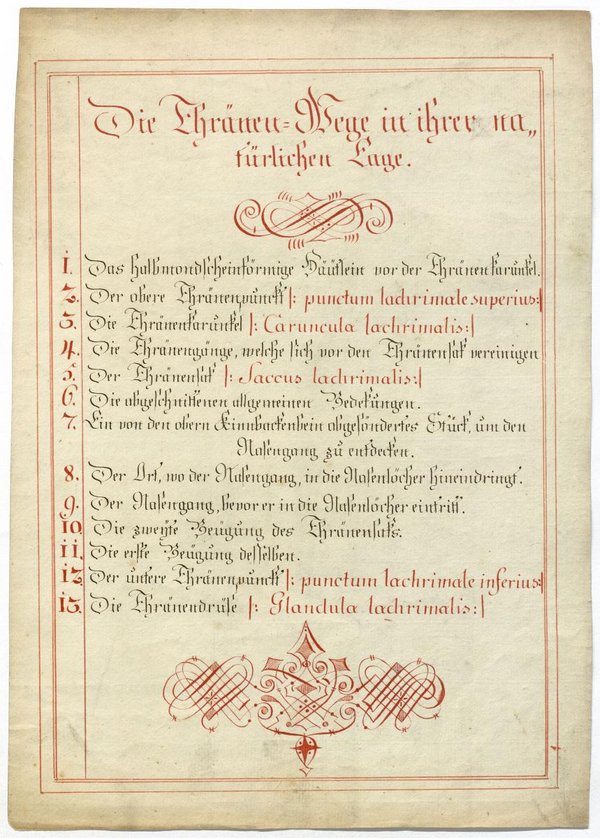 Die Thränen-Wege in ihrer na„
türlichen Lage.
1. Das halbmondscheinförmige Häutlein vor der Thränenkarunkel.
2. Der obere Thränenpunckt |: punctum lachrimale superius:|
3. Die Thränenkarunkel |: Caruncula lachrimalis:|
4. Die Thränengänge, welche sich vor den Thränensak vereinigen
5. Der Thränensak |: Saccus lachrimalis:|
6. Die abgeschnittenen allgemeinen Bedekungen.
7. Ein von den obern Kinnbackenbein abgesöndertes Stück, um den
Nasengang zu entdecken.
8. Der Ort, wo der Nasengang, in die Nasenlöcher hineindringt.
9. Der Nasengang, bevor er in die Nasenlöcher eintritt.
10. Die zweyte Beügung des Thränensaks.
11. Die erste Beügung desselben.
12. Der untere Thränenpunckt |: punctum lachrimale inferius:|
13. Die Thränendrüse |: Glandula lachrimalis:|